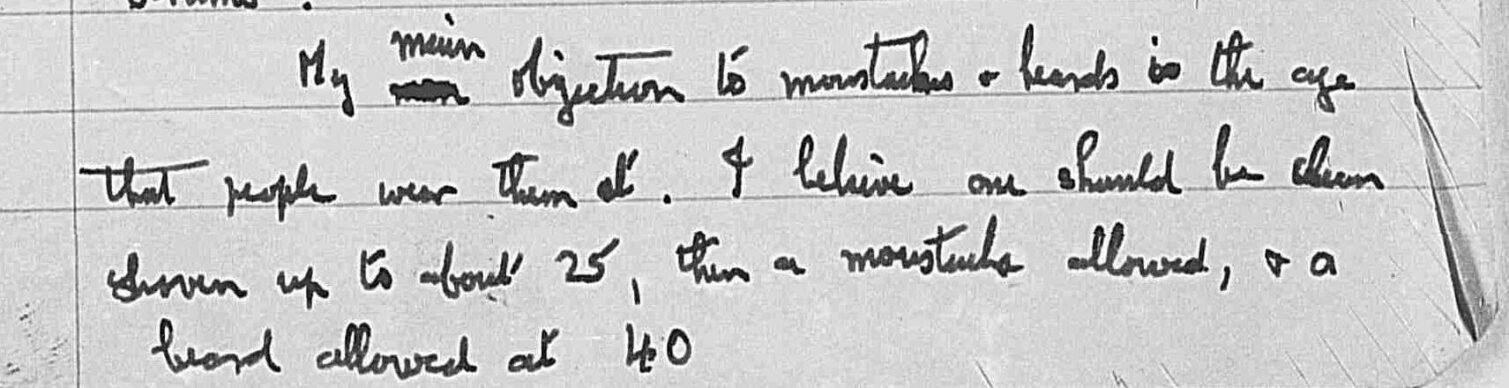 main
My objection to moustaches & beards is the age
that people wear them at. I believe one should be clean
shaven up to about 25, then a moustache allowed, & a
beard allowed at 40